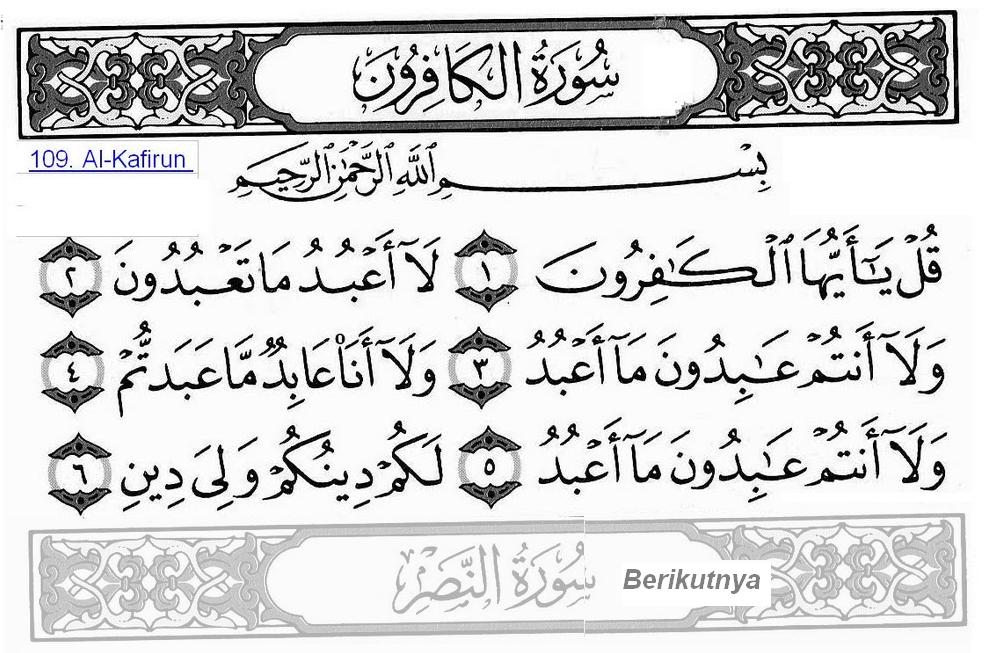 سُورَةُ الكَافِرُونَ
109. Al-Kafirun
بِسْمِ ٱللَّهِ ٱلرَّحْمَٰنِ ٱلرَّحِيمِ
قُلْ يَٰٓأَيُّهَا ٱلْكَٰفِرُونَ ١ لَآ أَعْبُدُ مَا تَعْبُدُونَ ٢
وَلَآ أَنتُمْ عَٰبِدُونَ مَآ أَعْبُدُ ٣ وَلَآ أَنَا۠ عَابِدٌ مَّا عَبَدتُّمْ ٤
وَلَآ أَنتُمْ عَٰبِدُونَ مَآ أَعْبُدُ ٥ لَكُمْ دِينُكُمْ وَلِىَ دِينِ ٦
سُورَةُ النَّصْرِ
Berikutnya